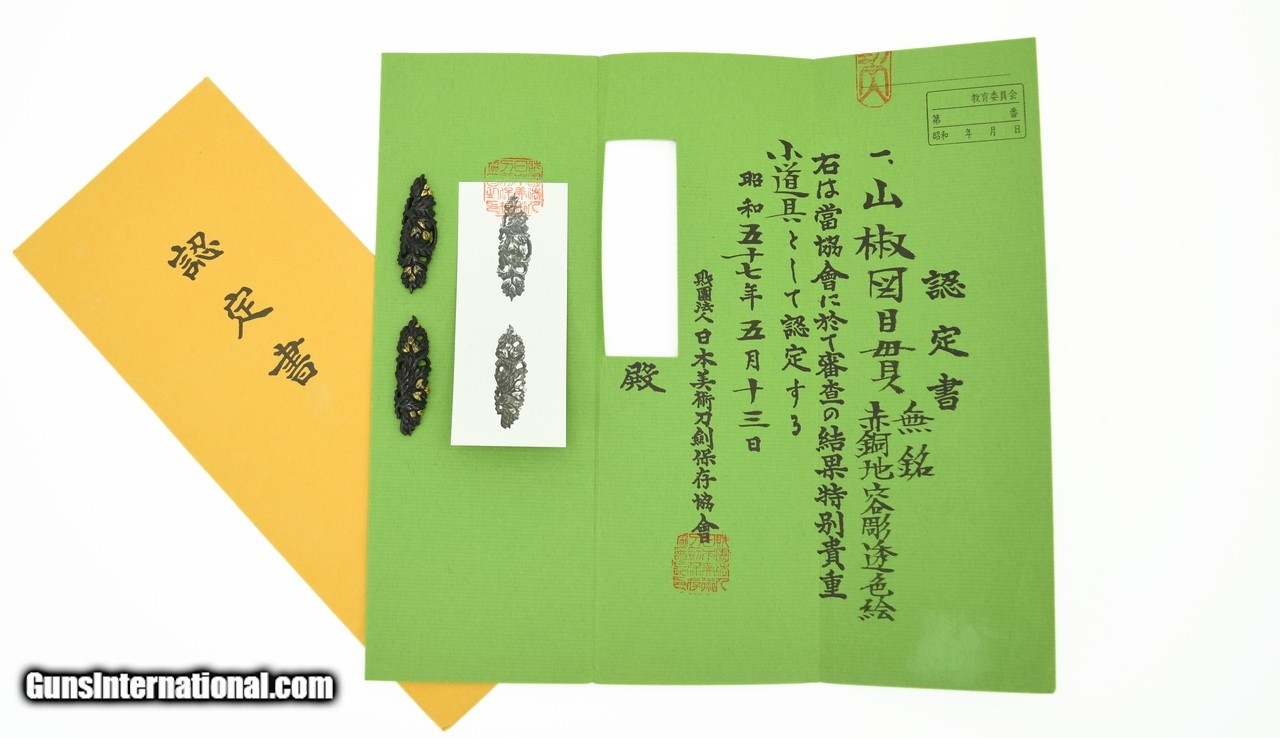 認定書
認定書
一、山椒図目貫
無銘
赤銅地容彫透色絵
右は當協會に於て審査の結果特別貴重
小道具として認定する
昭和五十七年五月十三日
財團法人日本美術刀劍保存協會
殿
教育委員会
第 番
昭和 年 月 日
GunsInternational.com